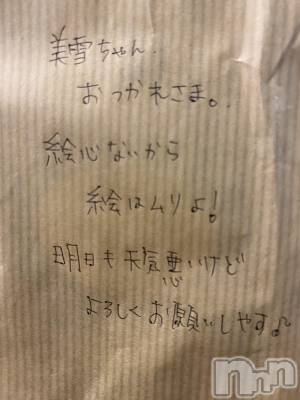 美雪ちゃん.
おつかれさま。
絵心ないから
絵はムリよ!
明日も天気悪いけど
よろしくお願いしやす♪